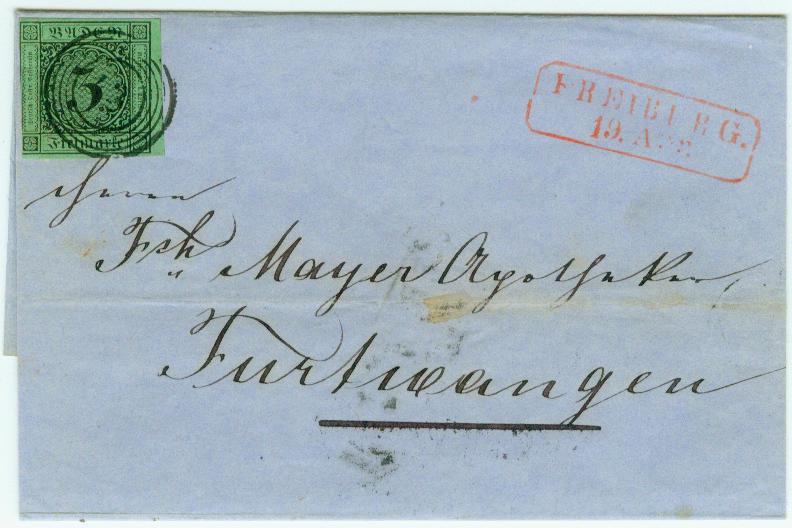 BADEN
3
Freimarke
FREIBURG.
19. Apr.
Herrn
Fsk Mayer Apotheker,
Furtwangen